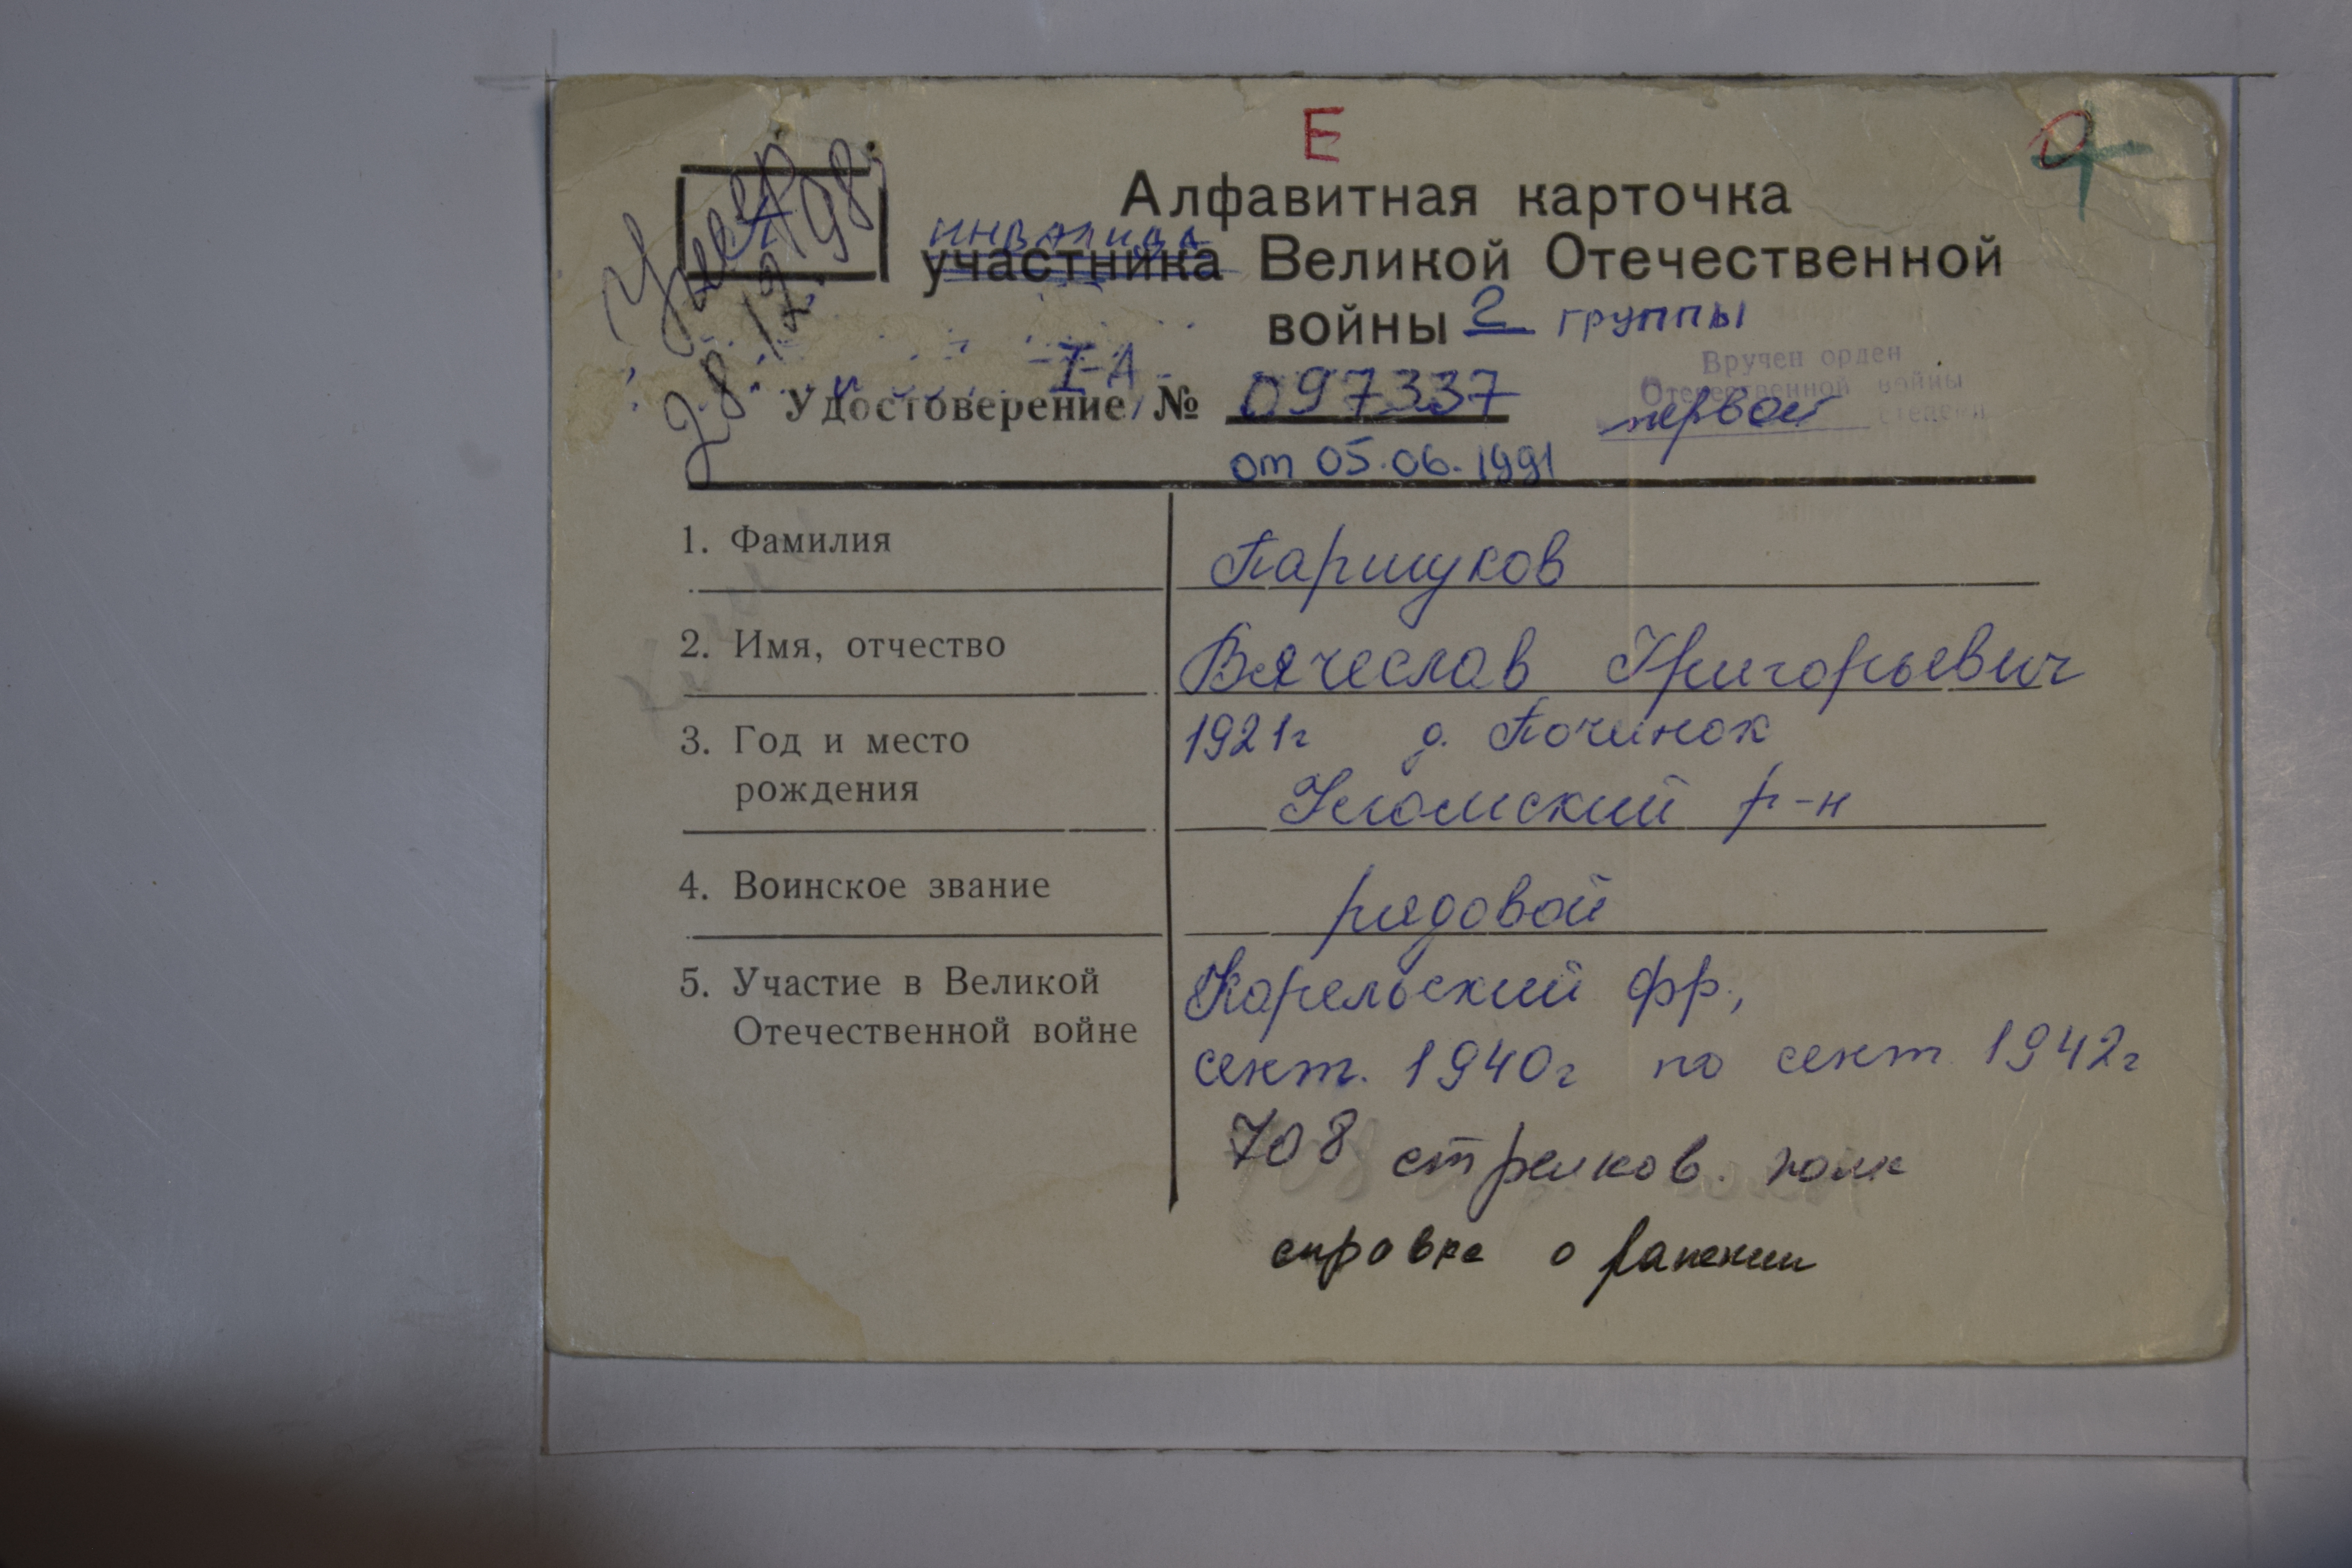 Е
Умер
28 12 198
П
Алфавитная карточка
инвалида
участника Великой Отечественной
войны 2 группы
Вручен орден
Отечественной войны
первой степени
I-А
Удостоверение № 097337
от 05.06.1991
1. Фамилия
Паршуков
2. Имя, отчество
Вячеслав Григорьевич
3. Год и место
рождения
1921г д. Починок
Усть-
р-н
4. Воинское звание
рядовой
5. Участие в Великой
Отечественной войне
Карельский фр.,
сент. 1940г по сент 1942г
708 стрелков. полк
справка о ранении